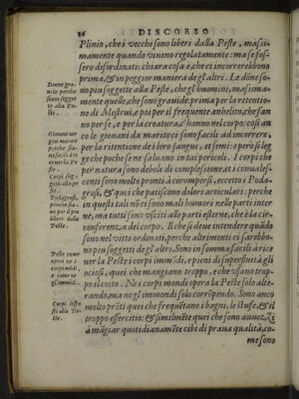 26 DISCORSO
Plinio, che i vecchi sono liberi dalla Peste, massi-
mamente quando viueno regolatamente: ma se fos-
sero disordinati: chiara cosa è, che ci incorrerebbono
prima, & in peggior maniera degl'altri. Le dōne so-
no piu soggette alla Peste, che gl'huomini, massima-
mente quelle, che sono grauide: prima per la retentio-
ne di Mestrui, e poi per il frequente anhelito, che fan
no per se, e per la creatura, c'hanno nel corpo: cosi an
co le giouani da marito ci sono facile ad incorrere,
per la retentione de i loro sangui, et semi: e però si leg
ge che poche se ne saluano in tai pericoli. I corpi che
per natura sono deboli di complessione, et i conuales-
centi sono molto pronti à corrompersi, eccetto i Poda-
grosi, & quei che patiscono dolori articulari: perche
in questi tali nō ci sono mali humori nelle parti inter
ne, ma tutti sono vsciti alle parti esterne, che è la cir-
conferenza del corpo. Il che si deue intendere quādo
sono nel vitto ordinati, perche altrimente ci sarebbo-
no piu soggetti degl'altri. Sono in somma facili à rice
uer la Peste i corpi immōdi, e pieni di superfluità gli
ociosi, quei che mangiano troppo, e che vsano trop-
po il coito. Ne i corpi mondi opera la Peste solo alte-
rando, ma negl'immondi solo corrōpendo. Sono anco
molto prōti quei che frequētano i bagni, le stufe, & il
troppo essercitio: & similmēte quei che sono auuez-
zi à māgiar quotidianamēte cibi di praua qualità, co-
me sono
Donne gra-
uide perche
siano sogget
te alla Pe-
ste.
Giouani ver
gini
perche sia-
no facili à ri
ceuer la Pe-
ste.
Corpi sog-
getti alla pe
ste.
Podagrosi,
perche sia-
no per il piu
liberi dalla
Peste.
Peste come
operi ne i
corpi mōdi,
e come ne
gl'immōdi.
Corpi dispo
sti alla Pe-
ste.